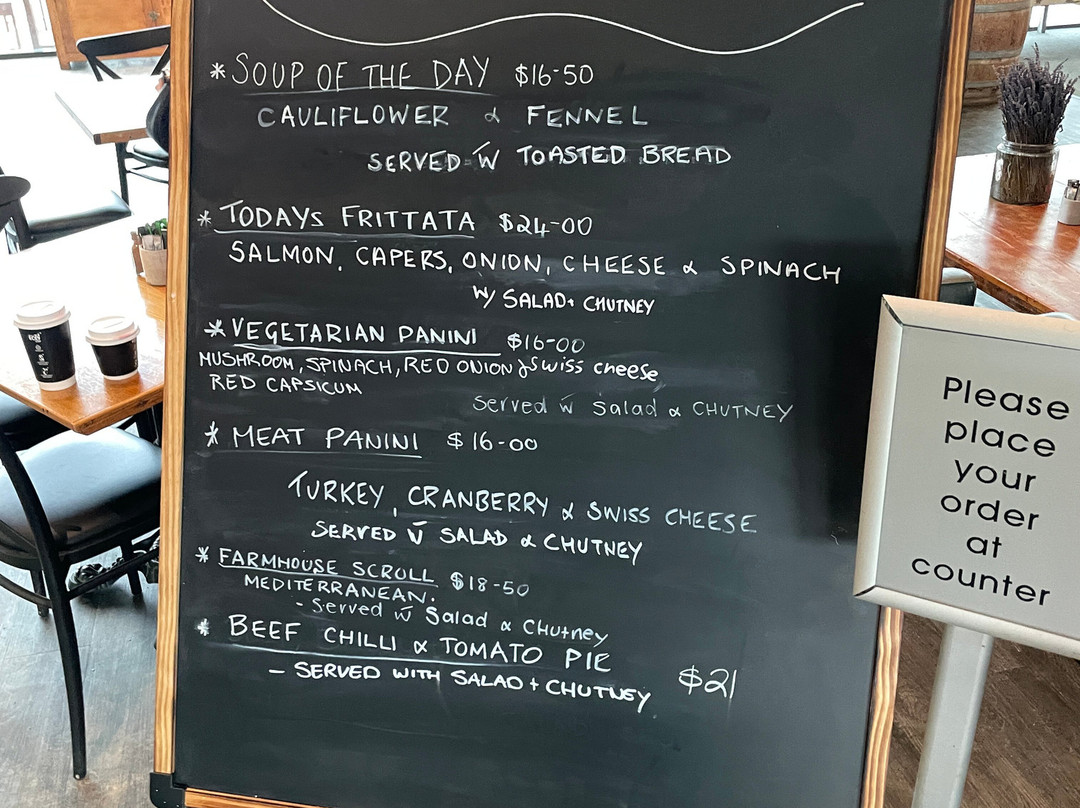 * SOUP OF THE DAY $16-50
CAULIFLOWER & FENNEL
SERVED W TOASTED BREAD
* TODAYS FRITTATA $24-00
SALMON, CAPERS, ONION, CHEESE & SPINACH
W/ SALAD + CHUTNEY
* VEGETARIAN PANINI $16-00
MUSHROOM, SPINACH, RED ONION & Swiss cheese
RED CAPSICUM
Served w Salad & CHUTNEY
* MEAT PANINI $16-00
TURKEY, CRANBERRY & SWISS CHEESE
SERVED W SALAD & CHUTNEY
* FARMHOUSE SCROLL $18-50
MEDITERRANEAN.
- Served w Salad & Chutney
* BEEF CHILLI & TOMATO PIE $21
- SERVED WITH SALAD + CHUTNEY
Please
place
your
order
at
counter